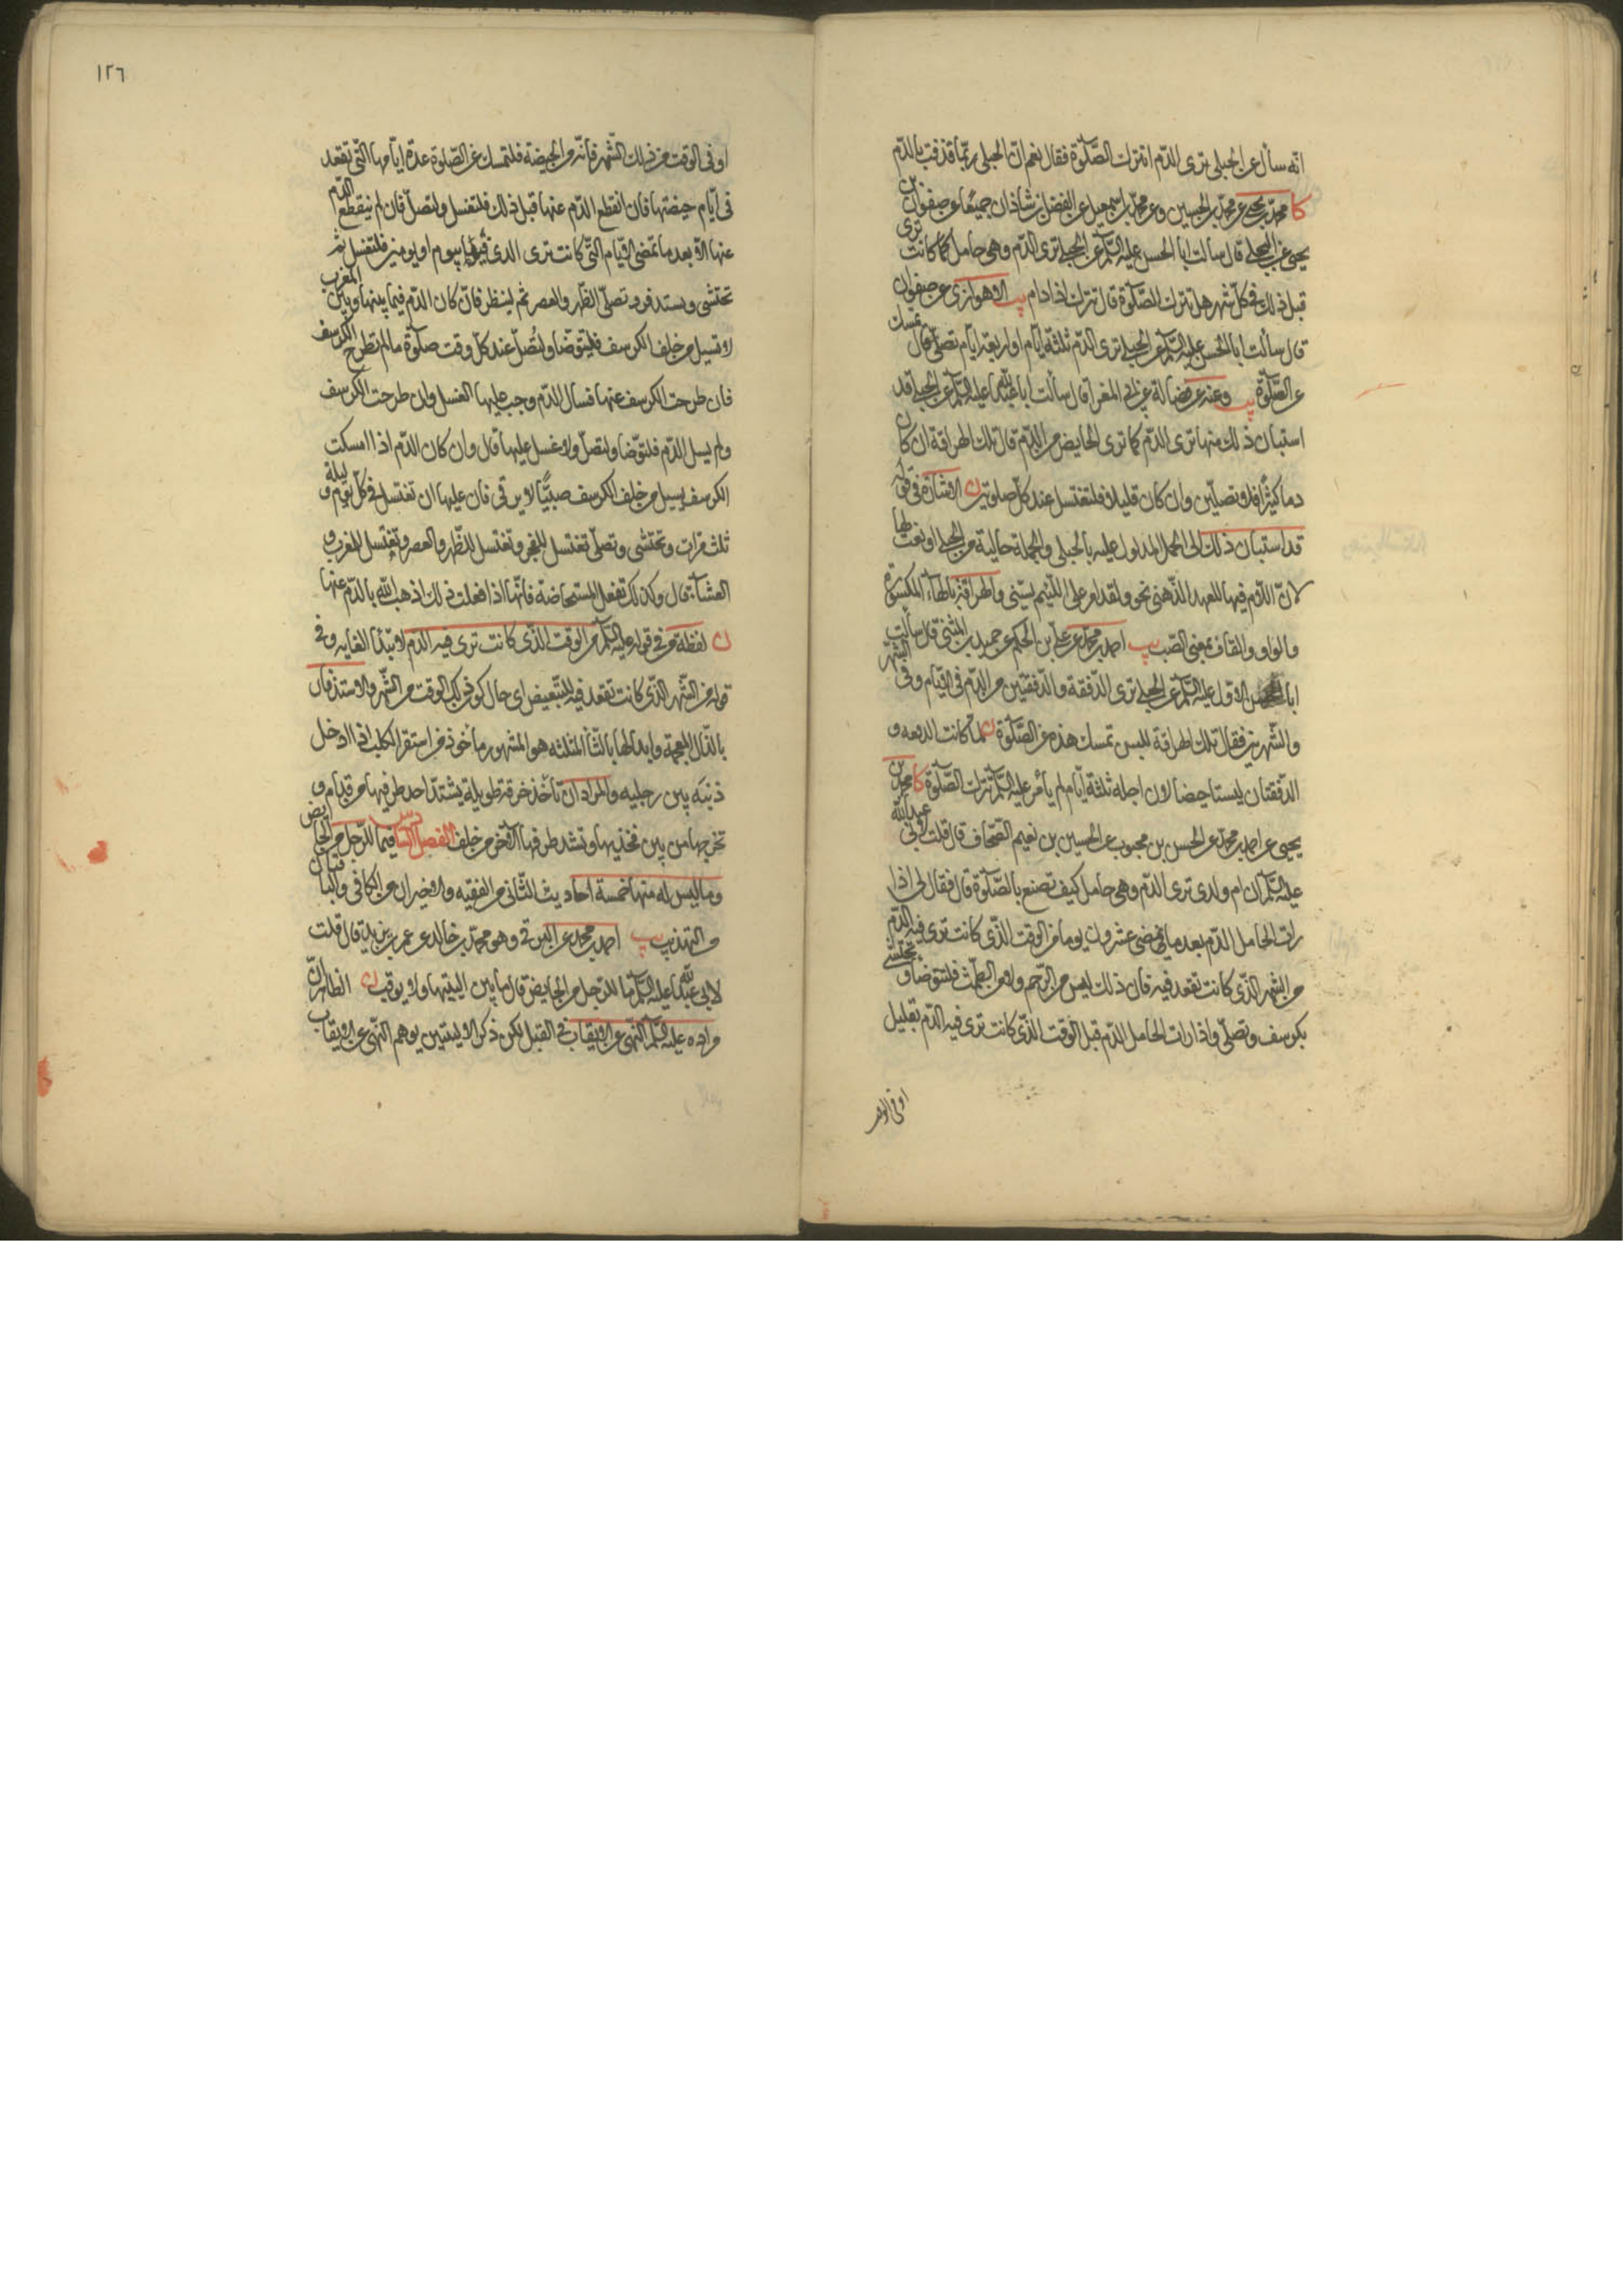 انه سأل عن الحبلى ترى الدم اتترك الصلوة فقال نعم ان الحبلى ربما قذفت بالدم
كا محمد بن يحيى عن محمد بن الحسين وعن محمد بن اسمعيل عن الفضل بن شاذان جميعا عن صفوان بن
يحيى عن البجلى قال سألت ابا الحسن عليه السلم عن الحبلى ترى الدم وهى حامل كما كانت ترى
قبل ذلك فى كل شهر هل تترك الصلوة قال تترك اذا دام يب الاهوازى عن صفوان
قال سألت ابا الحسن عليه السلم عن الحبلى ترى الدم ثلثة ايام او اربعة ايام تصلى قال تمسك
عن الصلوة يب وعنه عن فضالة عن ابى المغرا قال سألت ابا عبد الله عليه السلم عن الحبلى قد
استبان ذلك منها ترى الدم كما ترى الحايض من الدم قال تلك الهراقة ان كان
دما كثيرا فلا تصلين وان كان قليلا فلتغتسل عند كل صلوتين ن الاشارة فى قوله
قد استبان ذلك الى الحمل المدلول عليه بالحبلى والجملة حالية من الحبلى او نعت لها
لان اللام فيها للعهد الذهنى نحو ولقد امر على اللئيم يسبنى والهراقة بالهاء المكسورة
والواو والقاف بمعنى الصب يب احمد بن محمد عن على بن الحكم عن حميد بن المثنى قال سألت
ابا الحسن الاول عليه السلم عن الحبلى ترى الدفقة والدفقتين من الدم فى الايام وفى الشهر
والشهرين فقال تلك الهراقة ليس تمسك هذه عن الصلوة ن لما كانت الدفعه و
الدفقتان ليستا حيضا لان اجله ثلثة ايام لم يأمر عليه السلم بترك الصلوة كا محمد بن
يحيى عن احمد بن محمد عن الحسن بن محبوب عن الحسين بن نعيم الصحاف قال قلت لابى عبد الله
عليه السلم ان ام ولدى ترى الدم وهى حامل كيف تصنع بالصلوة قال فقال لى اذا
رات الحامل الدم بعد ما تمضى عشرون يوما من الوقت الذى كانت ترى فيه الدم
من الشهر الذى كانت تقعد فيه فان ذلك ليس من الرحم ولا من الطمث فلتتوضأ وتحتشى
بكرسف وتصلى واذا رات الحامل الدم قبل الوقت الذى كانت ترى فيه الدم بقليل
١٢٦
او فى الوقت من ذلك الشهر فانه من الحيضة فلتمسك عن الصلوة عدة ايامها التى تقعد
فى ايام حيضتها فان انقطع الدم عنها قبل ذلك فلتغتسل ولتصل فان لم ينقطع الدم
عنها الا بعد ما تمضى الايام التى كانت ترى الدم فيها بيوم او يومين فلتغتسل ثم
تحتشى وتستذفر وتصلى الظهر والعصر ثم لينظر فان كان الدم فيما بينها وبين المغرب
لا تسيل من خلف الكرسف فليتوضا ولتصل عند كل وقت صلوة ما لم تطرح الكرسف
فان طرحت الكرسف عنها فسال الدم وجب عليها الغسل وان طرحت الكرسف
ولم يسل الدم فلتوضا ولتصل ولا غسل عليها قال وان كان الدم اذا امسكت
الكرسف يسيل من خلف الكرسف صبيبا لا يرقى فان عليها ان تغتسل فى كل يوم وليلة
ثلث مرات وتحتشى وتصلى تغتسل للفجر وتغتسل للظهر والعصر وتغتسل للمغرب و
العشاء قال وكذلك تفعل المستحاضة فانها اذا فعلت ذلك اذهب الله بالدم عنها
ن لفظة من فى قوله عليه السلم من الوقت الذى كانت ترى فيه الدم لابتدا الغايه وفى
قوله من الشهر الذى كانت تقعد فيه للتبعيض اى حال كون ذلك الوقت من الشهر والاستذفار
بالذال المعجمة وابدالها بالثا المثلثه هو المشهور مأخوذ من استفر الكلب اذا ادخل
ذنبه بين رجليه والمراد ان تأخذ خرقة طويلة يشتد احد طرفيها من قدام و
تخرجها من بين فخذيها وتشد طرفها الاخر من خلف الفصل السادس فيما للرجل من الحايض
وما ليس له منها خمسة احاديث الثانى من الفقيه والاخيران من الكافى والباقيان
من التهذيب يب احمد بن محمد عن البرقى وهو محمد بن خالد عن عمر بن يزيد قال قلت
لابى عبد الله عليه السلم ما للرجل من الحايض قال ما بين اليتيها ولا يوقب ن الظاهر ان
مراده عليه السلم النهى عن الايقاب فى القبل لكن ذكر الاليتين يوهم النهى عن الايقاب